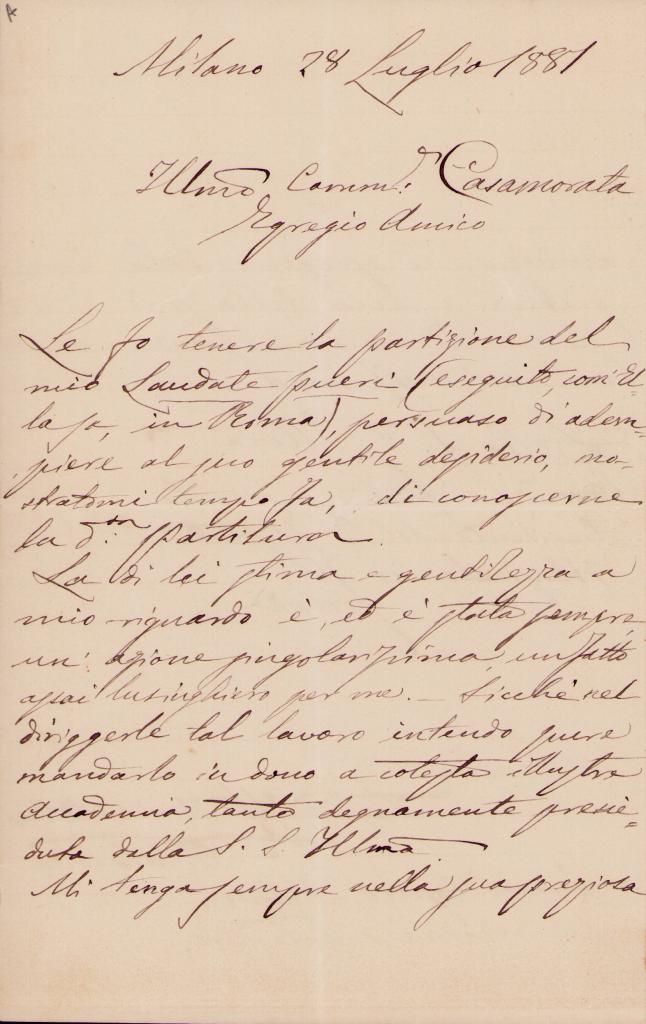 A
Milano 28 Luglio 1881
Illmo Comm.r Casamorata
Egregio Amico
Le fo tenere la partizione del
mio Laudate pueri (eseguito, com' El-
la sa, in Roma), persuaso di adem=
piere al suo gentile desiderio, mo-
stratomi tempo fa, di conoscerne
la d.ta partitura.
La di lei stima e gentilezza a
mio riguardo è, ed è stata sempre,
un' azione singolarissima, un fatto
assai lusinghiero per me. – Sicchè nel
diriggerle tal lavoro intendo pure
mandarlo in dono a cotesta illustre
Accademia, tanto degnamente presie=
duta dalla S. S. Illma.
Mi tenga sempre nella sua preziosa